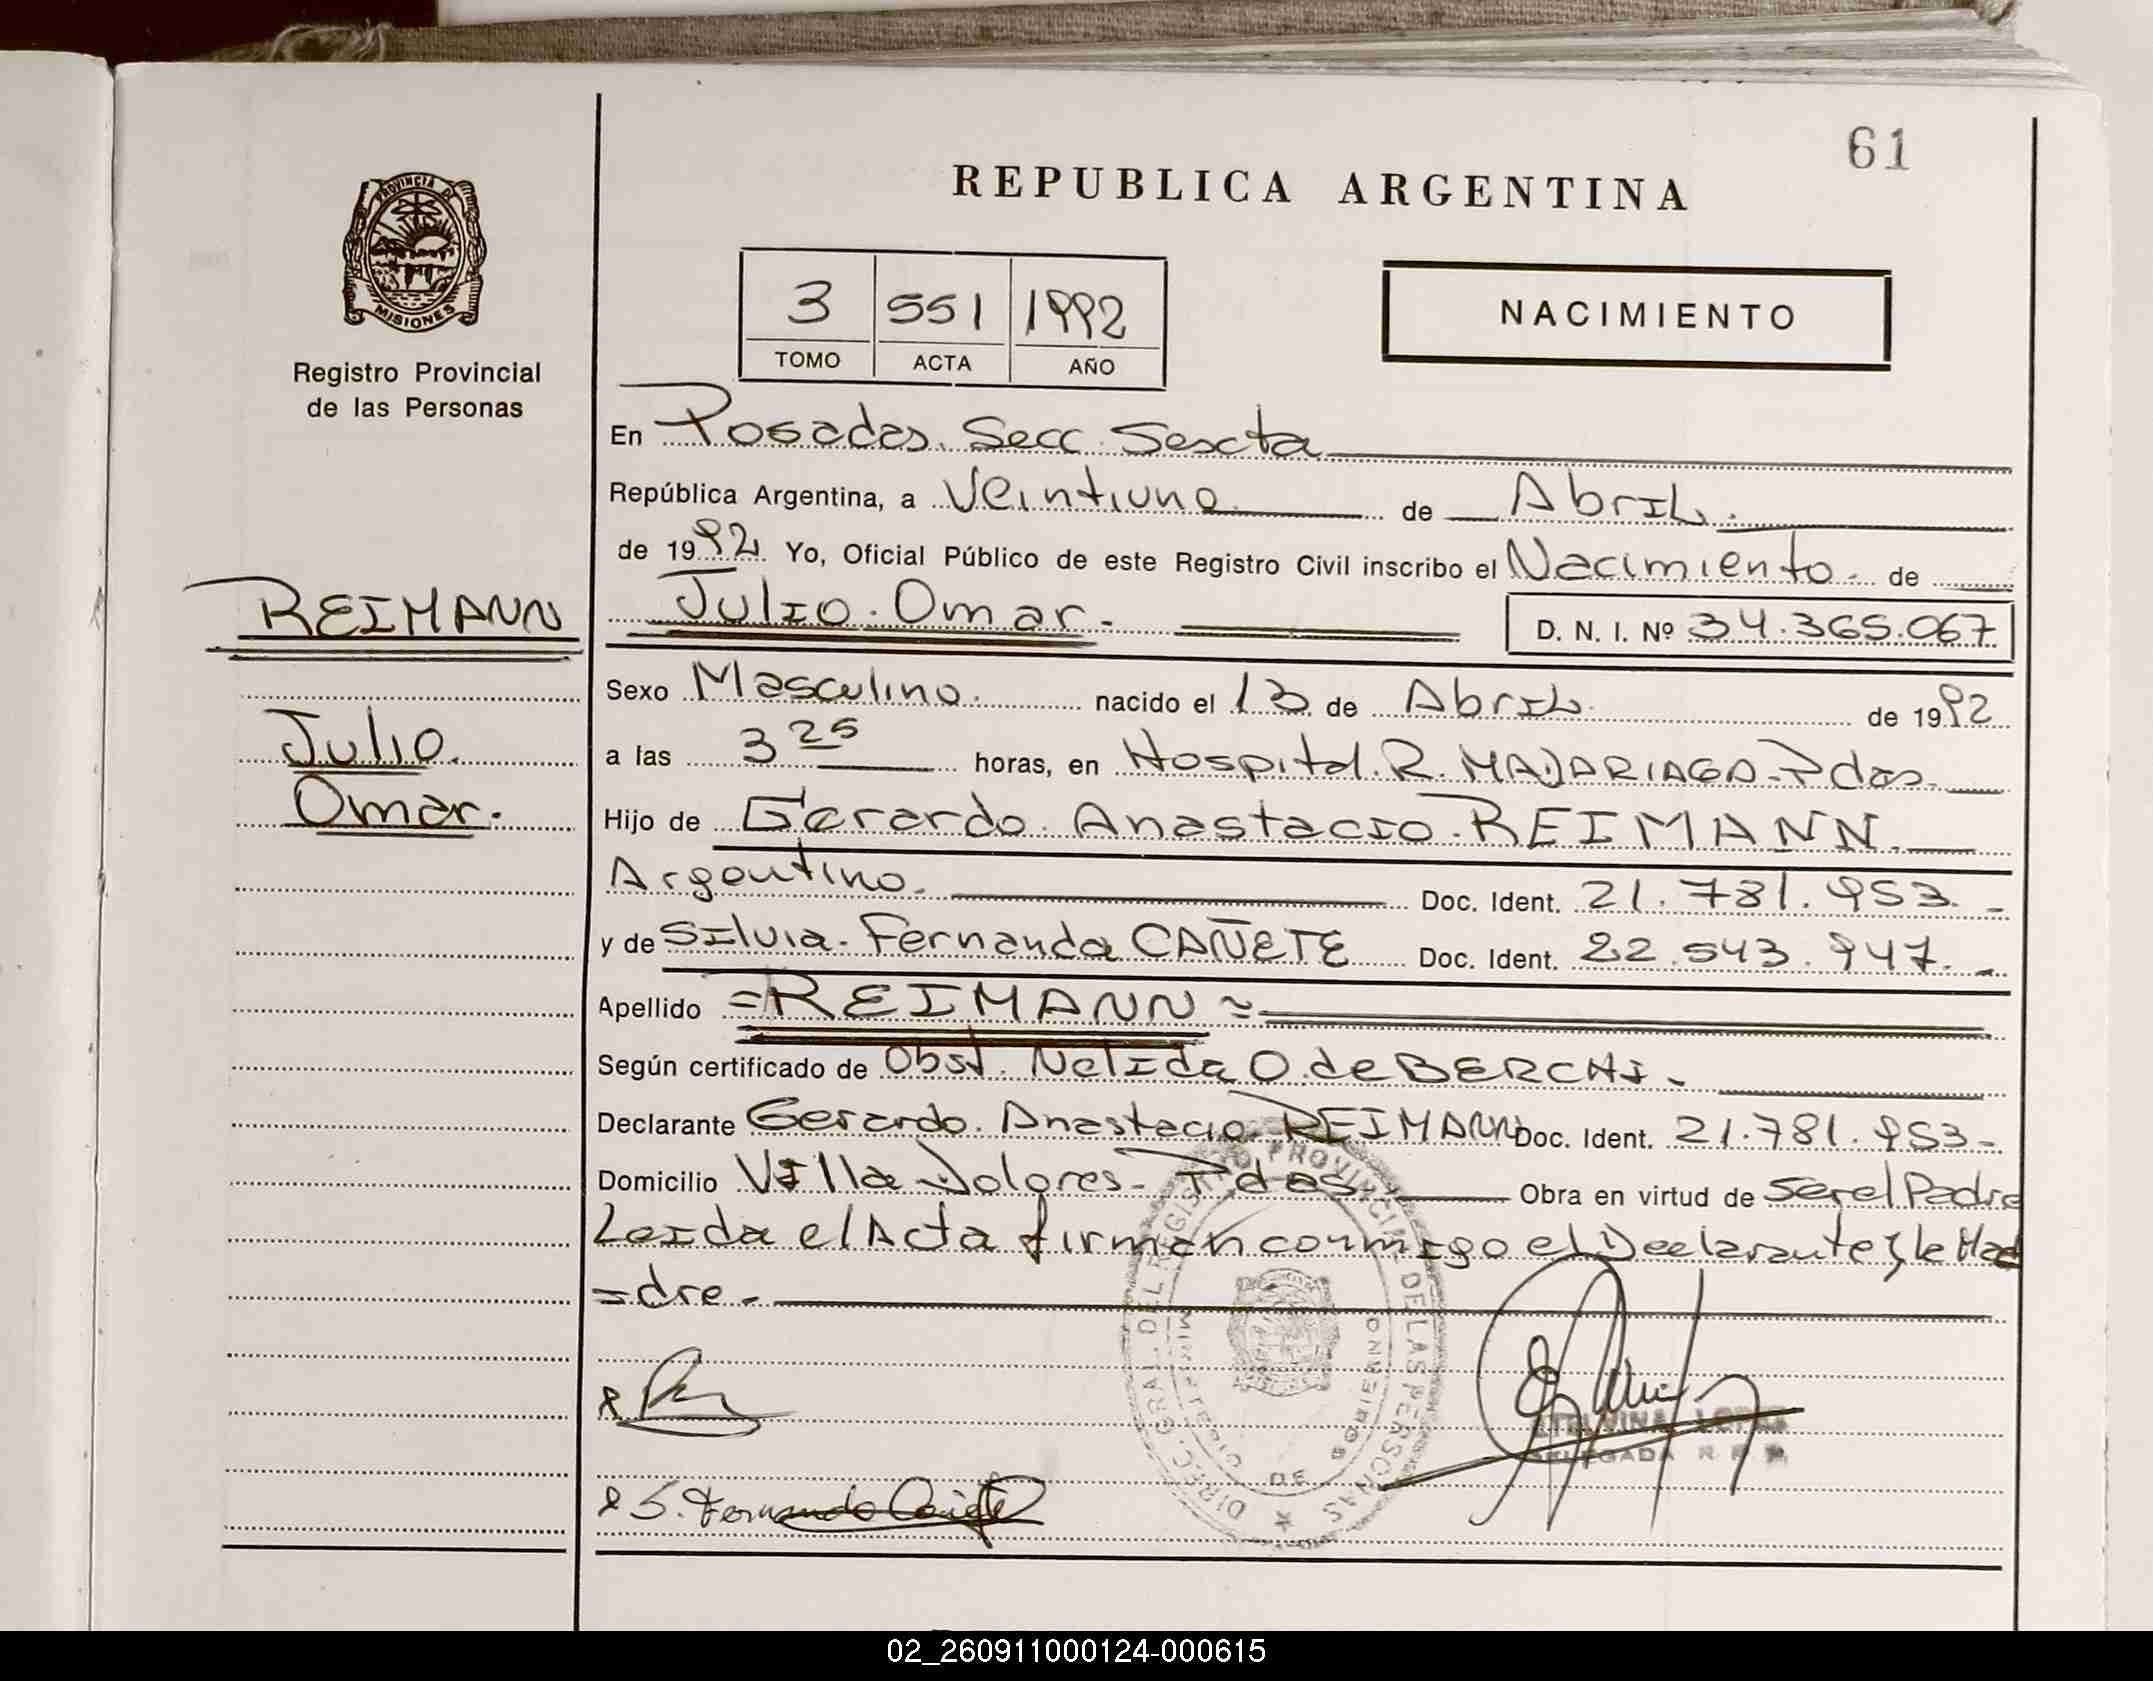 61
REPUBLICA ARGENTINA
PROVINCIA DE
MISIONES
Registro Provincial
de las Personas
3 551 1992
TOMO ACTA AÑO
NACIMIENTO
En Posadas. Secc. Sescta
República Argentina, a Veintiuno de Abril.
de 1992 Yo, Oficial Público de este Registro Civil inscribo el Nacimiento de
REIMANN
Julio Omar. D. N. I. Nº 34.365.067
Sexo Masculino. nacido el 13 de Abril de 1992
Julio.
a las 3 25 horas, en Hospital. R. MADARIAGA. Pdas.
Omar.
Hijo de Gerardo Anastacio. REIMANN.
Argentino. Doc. Ident. 21.781.953.
y de Silvia. Fernanda CAÑETE Doc. Ident. 22.543.947.
Apellido =REIMANN=
Según certificado de Obst. Nelida O. de BERCHI.
Declarante Gerardo. Anastacio. REIMANN Doc. Ident. 21.781.953=
Domicilio Villa Dolores- Pdas. Obra en virtud de Ser el Padre
Leida el Acta firman conmigo el Declarante y la Mad
=dre.
DIREC. GRAL. DEL REGISTRO PROVINCIAL DE LAS PERSONAS
MINISTERIO DE GOBIERNO
DELEGADA R. P. P.
S. Fernanda Cañete
02_260911000124-000615